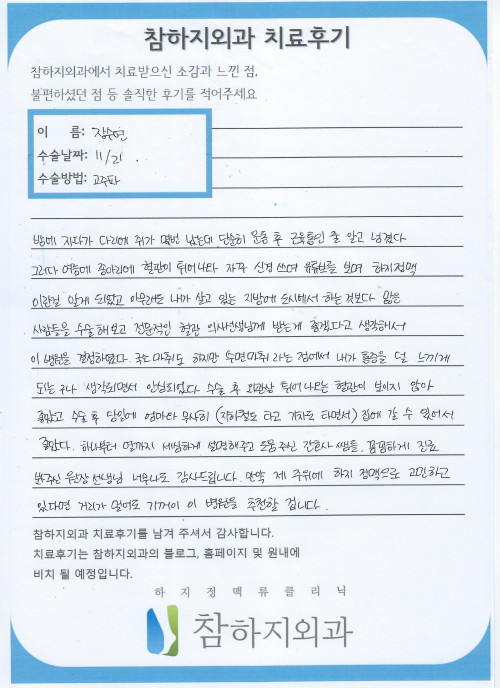 참하지외과 치료후기
참하지외과에서 치료받으신 소감과 느낀 점,
불편하셨던 점 등 솔직한 후기를 적어주세요
이 름:
수술날짜: 11/21.
수술방법: 고주파
밤에 자다가 다리에 쥐가 몇번 났는데 단순히 운동 후 근육통인 줄 알고 넘겼다
그러다 여름에 종아리에 혈관이 튀어나와 자꾸 신경 쓰여 유튜브를 보며 하지정맥
이란걸 알게 되었고 아무래도 내가 살고 있는 지방에 도시에서 하는 것보다 많은
사람들을 수술해보고 전문적인 혈관 의사선생님께 받는게 좋겠다고 생각해서
이 병원을 결정하였다. 국소마취도 하지만 수면마취라는 점에서 내가 통증을 덜 느끼게
되는구나 생각되면서 안심되었다 수술 후 외관상 튀어나오는 혈관이 보이지 않아
좋았고 수술 후 당일에 엄마와 무사히 (지하철도 타고 기차도 타면서) 집에 갈 수 있어서
좋았다. 하나부터 열까지 세심하게 설명해주고 도움주신 간호사 쌤들, 꼼꼼하게 진료
봐주신 원장 선생님 너무나도 감사드립니다. 만약 제 주위에 하지 정맥으로 고민하고
있다면 거리가 멀어도 기꺼이 이 병원을 추천할 겁니다.
참하지외과 치료후기를 남겨 주셔서 감사합니다.
치료후기는 참하지외과의 블로그, 홈페이지 및 원내에
비치 될 예정입니다.
하지정맥류클리닉
참하지외과